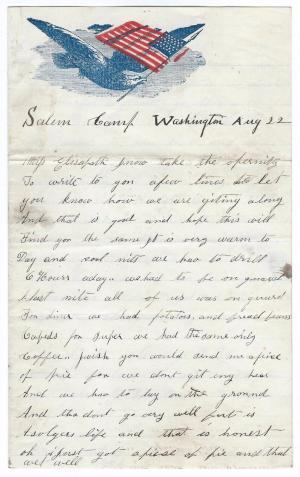 Salem Camp Washington Aug 22
Miss Elisabeth I now take the opernity
To write to you a few lines to let
you know how we are giting along
And that is good and hope this will
Find you the same it is very warm to
Day and cool nitt we hav to drill
6 Hours aday we had to be on guard
last nite all of us was on guard
For diner we had potatos and bread beans
for super we had the same only
Coffee I wish you would send me a pice
of pie for we dont git my hear
And we hav to lay on the ground
And tha dont go very well but is
a solgers life and that is honest
oh I just got a pice of pie and that
wet well